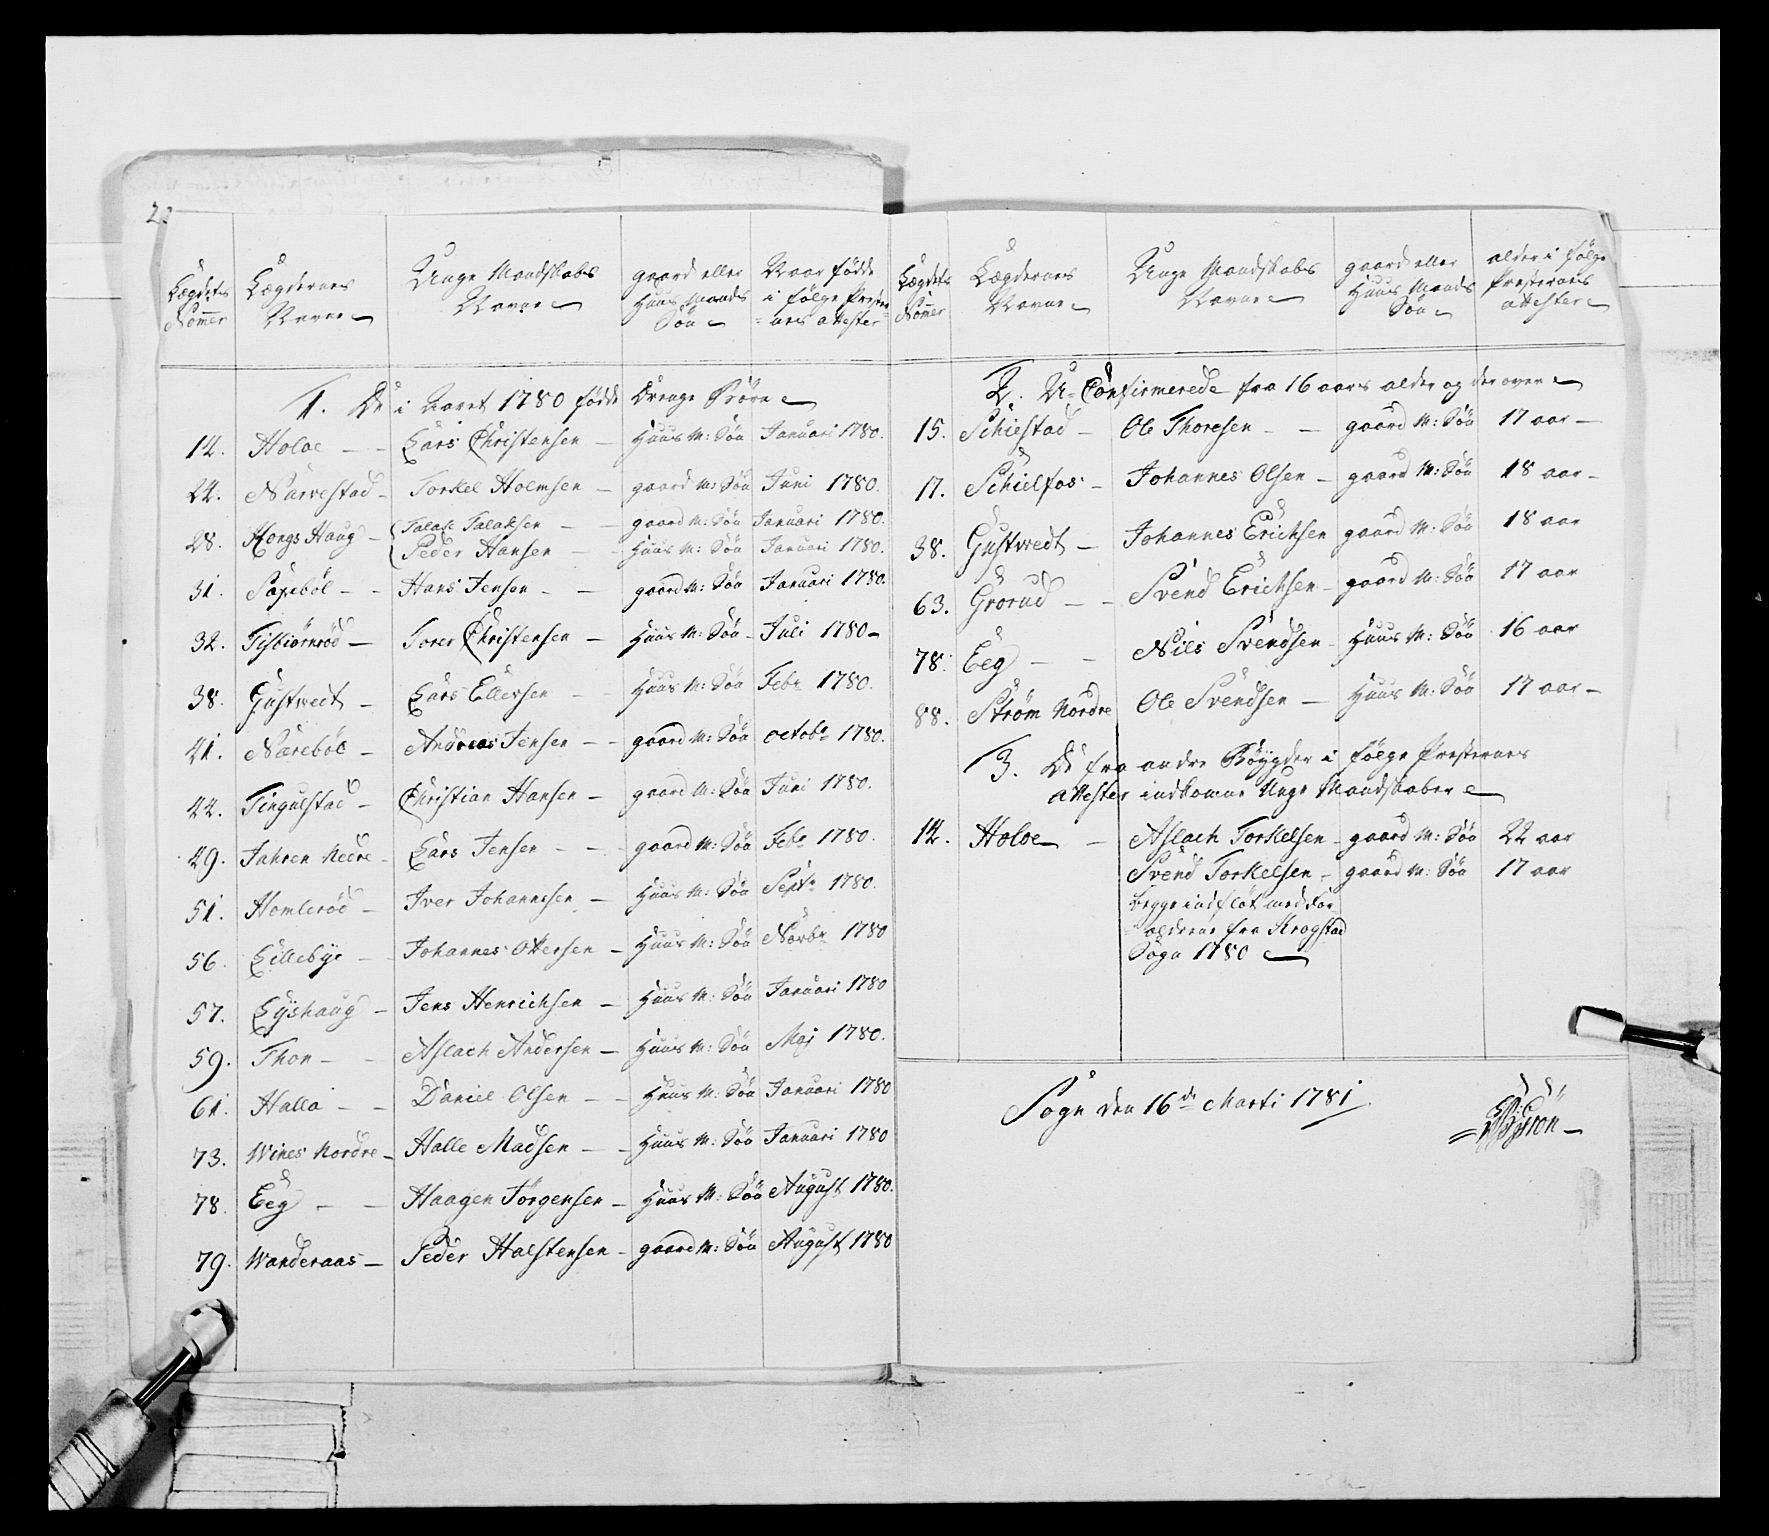 Lægdets Nommer | Lægdernes Navne | Unge Mandskabs Navne | gaard eller Huus Mands Søn | Naar fødde i følge Presternes attester
1. De i Aaret 1780 fødde Drenge Børn
14. Holoe - - Lars Christensen - Huus M: Søn Januari 1780.
24. Narvestad - Torkel Holmsen - gaard M: Søn Juni 1780.
28. Kongs Haug - Talak Talaksen - gaard M: Søn Januari 1780.
Peder Hansen - Huus M: Søn Januari 1780.
31. Saxeböl - - Hans Jensen - - gaard M: Søn Januari 1780.
32. Tisbiörnröd - Torer Christensen - Huus M: Søn - Juli 1780 -
38. Gustvedt - Lars Ellevsen - Huus M: Søn Febr 1780.
41. Nareböe - Andreas Jensen - - gaard M: Søn octobr 1780.
42. Tingulstad - Christian Hansen - gaard M: Søn Juni 1780.
49. Jahren Nedre - Lars Jensen - - gaard M: Søn Febr 1780.
51. Homleröd - Iver Johannesen - Huus M: Søn Septr 1780.
56. Lillebye - Johannes Ottersen - Huus M: Søn Novbr 1780
57. Lyshaug - Jens Henrichsen - Huus M: Søn Januari 1780
59. Thon - - Aslach Andersen - Huus M: Søn Maj 1780.
61. Halla - - Daniel Olsen - - Huus M: Søn Januari 1780
73. Wines Nordre - Halle Madsen - - Huus M: Søn Januari 1780
78. Eeg - - Haagen Jörgensen - Huus M: Søn August 1780.
79. Wanderaas - Peder Halstensen - gaard M: Søn August 1780
Lægdets Nommer | Lægdernes Navne | Unge Mandskabs Navne | gaard eller Huus Mands Søn | alder i følge Presternes attester
2. U-Confirmerede fra 16 aars alder og derover
15. Schiestad - Ole Thoresen - - gaard M: Søn 17 aar -
17. Schielfos - Johannes Olsen - gaard M: Søn 18 aar -
38. Gustvedt - Johannes Erichsen gaard M: Søn 18 aar
63. Grorud - - Svend Erichsen - gaard M: Søn 17 aar
78. Eeg - - Nils Svendsen - Huus M: Søn 16 aar
88. Ström Nordre Ole Svendsen - Huus M: Søn 17 aar -
3. De fra andre Böygder i følge Presternes
attester indkomne Unge Mandskaber
14. Holoe - - Aslach Torkelsen - gaard M: Søn 22 aar
Svend Torkelsen - gaard M: Søn 17 aar
begge indfløt med for
ældrene fra Krogstad
Sogn 1780
Sogn den 16de Marti 1781